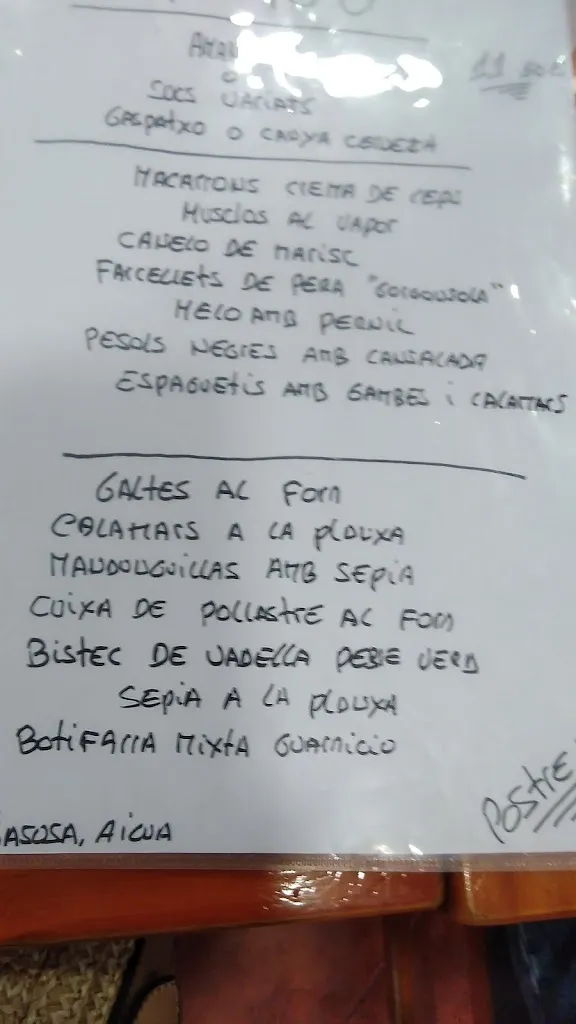 O
SUCS VARIATS
GASPATXO O CANYA CERVEZA
MACARRONS CREMA DE CEPS
MUSCLOS AL VAPOR
CANELO DE MARISC
FARCELLETS DE PERA "GORGONZOLA"
MELO AMB PERNIL
PESOLS NEGRES AMB CANSALADA
ESPAGUETIS AMB GAMBES i CALAMARS
GALTES AL FORN
CALAMARS A LA PLANXA
MANDONGUILLAS AMB SEPIA
CUIXA DE POLLASTRE AL FORN
BISTEC DE VADELLA PEBRE VERD
SEPIA A LA PLANXA
BOTIFARRA MIXTA GUARNICIO
POSTRE
GASOSA, AIGUA